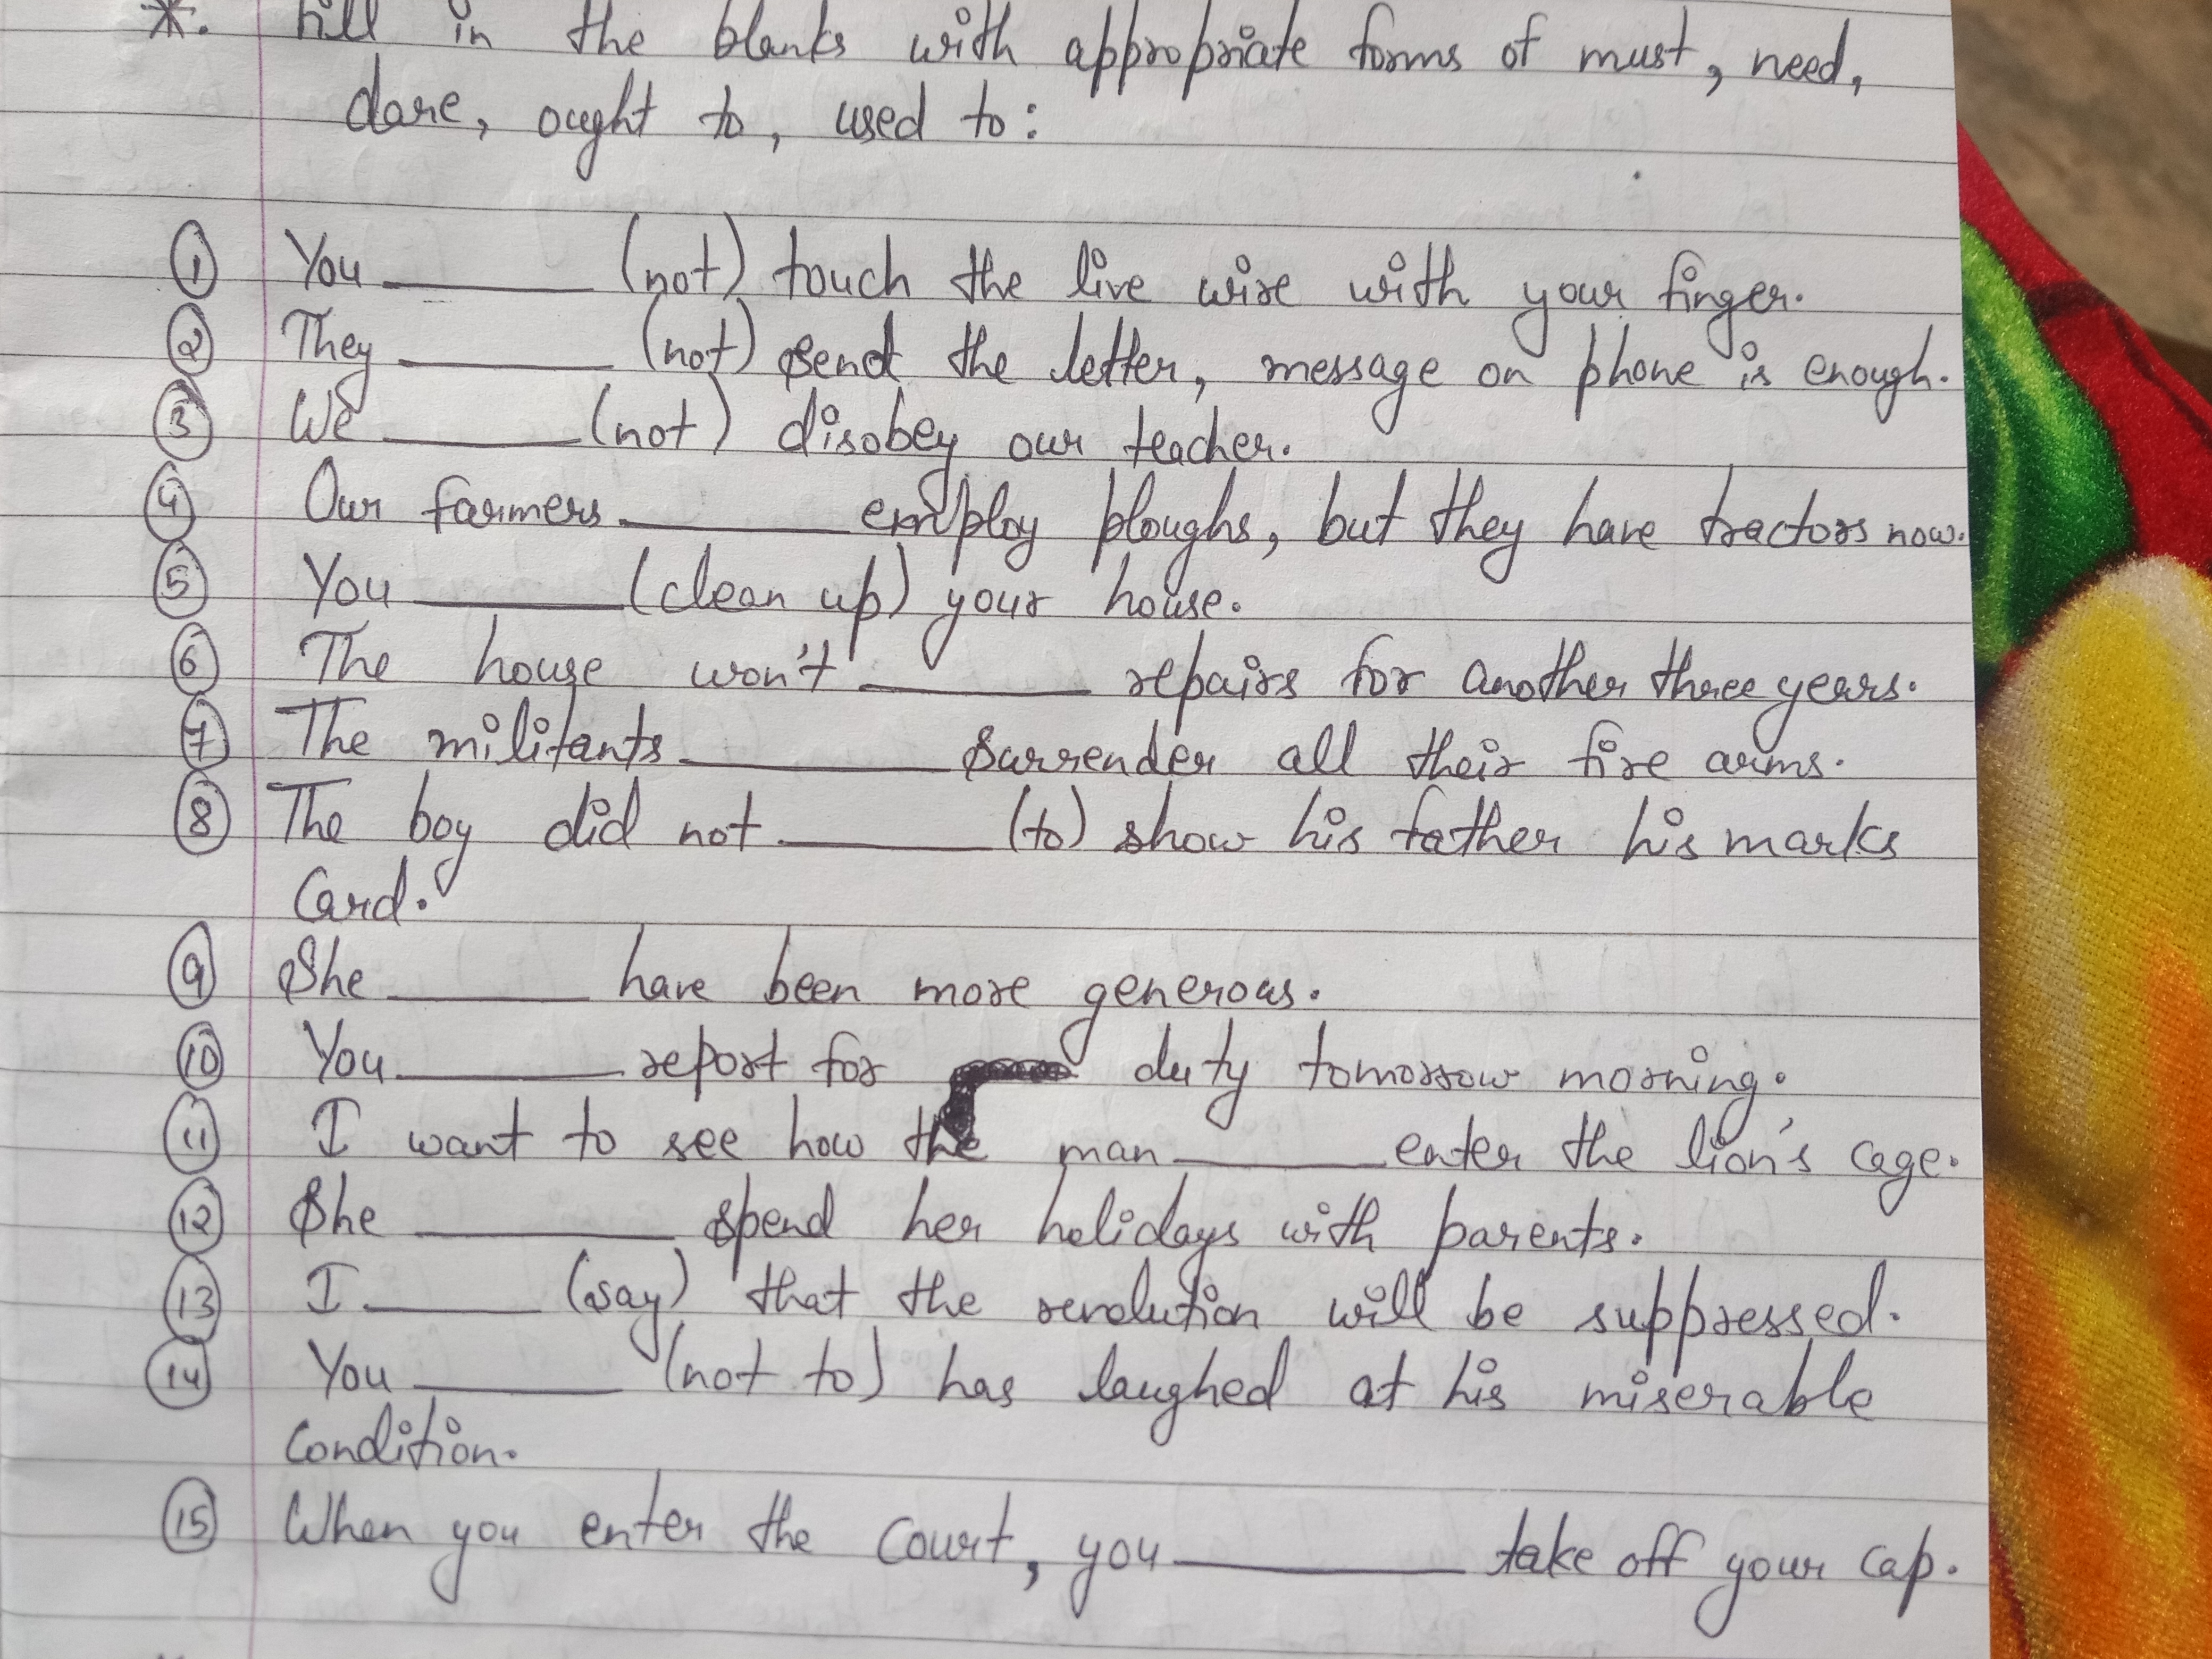 *. Fill in the blanks with appropriate forms of must, need,
dare, ought to, used to:
① You ______ (not) touch the live wire with your finger.
② They ______ (not) send the letter, message on phone is enough.
③ We ______ (not) disobey our teacher.
④ Our farmers ______ employ ploughs, but they have tractors now.
⑤ You ______ (clean up) your house.
⑥ The house won't ______ repairs for another three years.
⑦ The militants ______ surrender all their fire arms.
⑧ The boy did not ______ (to) show his father his marks
Card.
⑨ She ______ have been more generous.
⑩ You ______ report for duty tomorrow morning.
⑪ I want to see how the man ______ enter the lion's cage.
⑫ She ______ spend her holidays with parents.
⑬ I ______ (say) that the revolution will be suppressed.
⑭ You ______ (not to) has laughed at his miserable
Condition.
⑮ When you enter the Court, you ______ take off your cap.